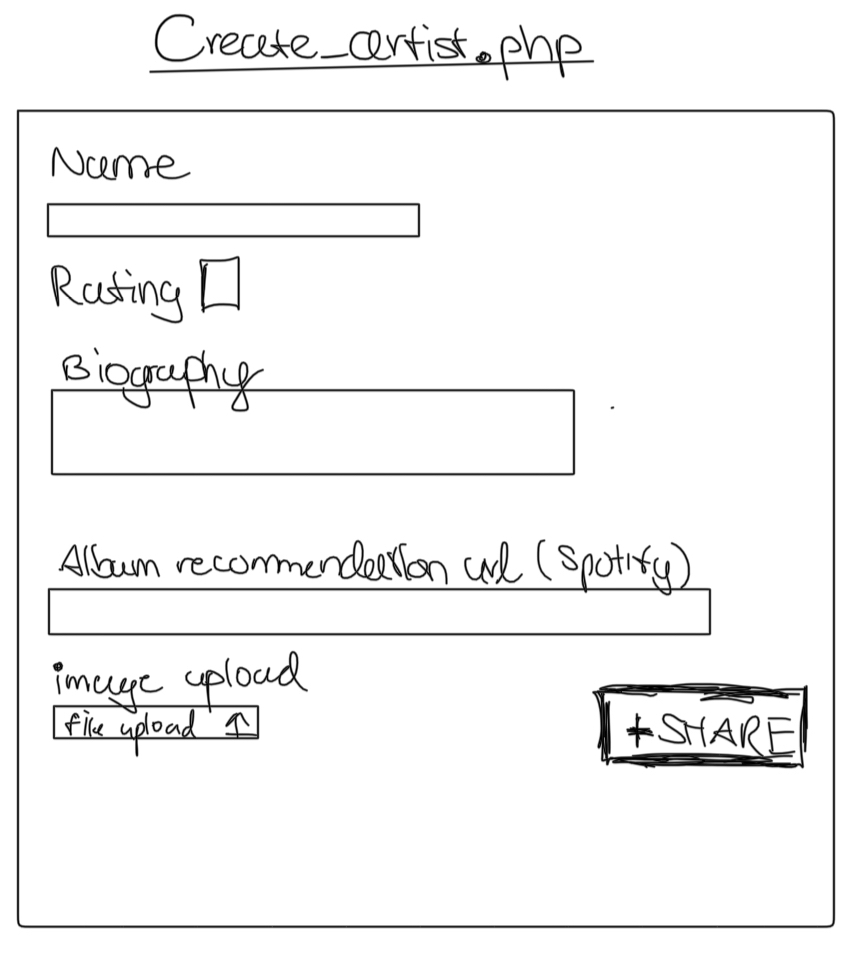 Create_artist.php
Name
Rating
Biography
Album recommendation url (Spotify)
image upload
file upload ↑
+SHARE